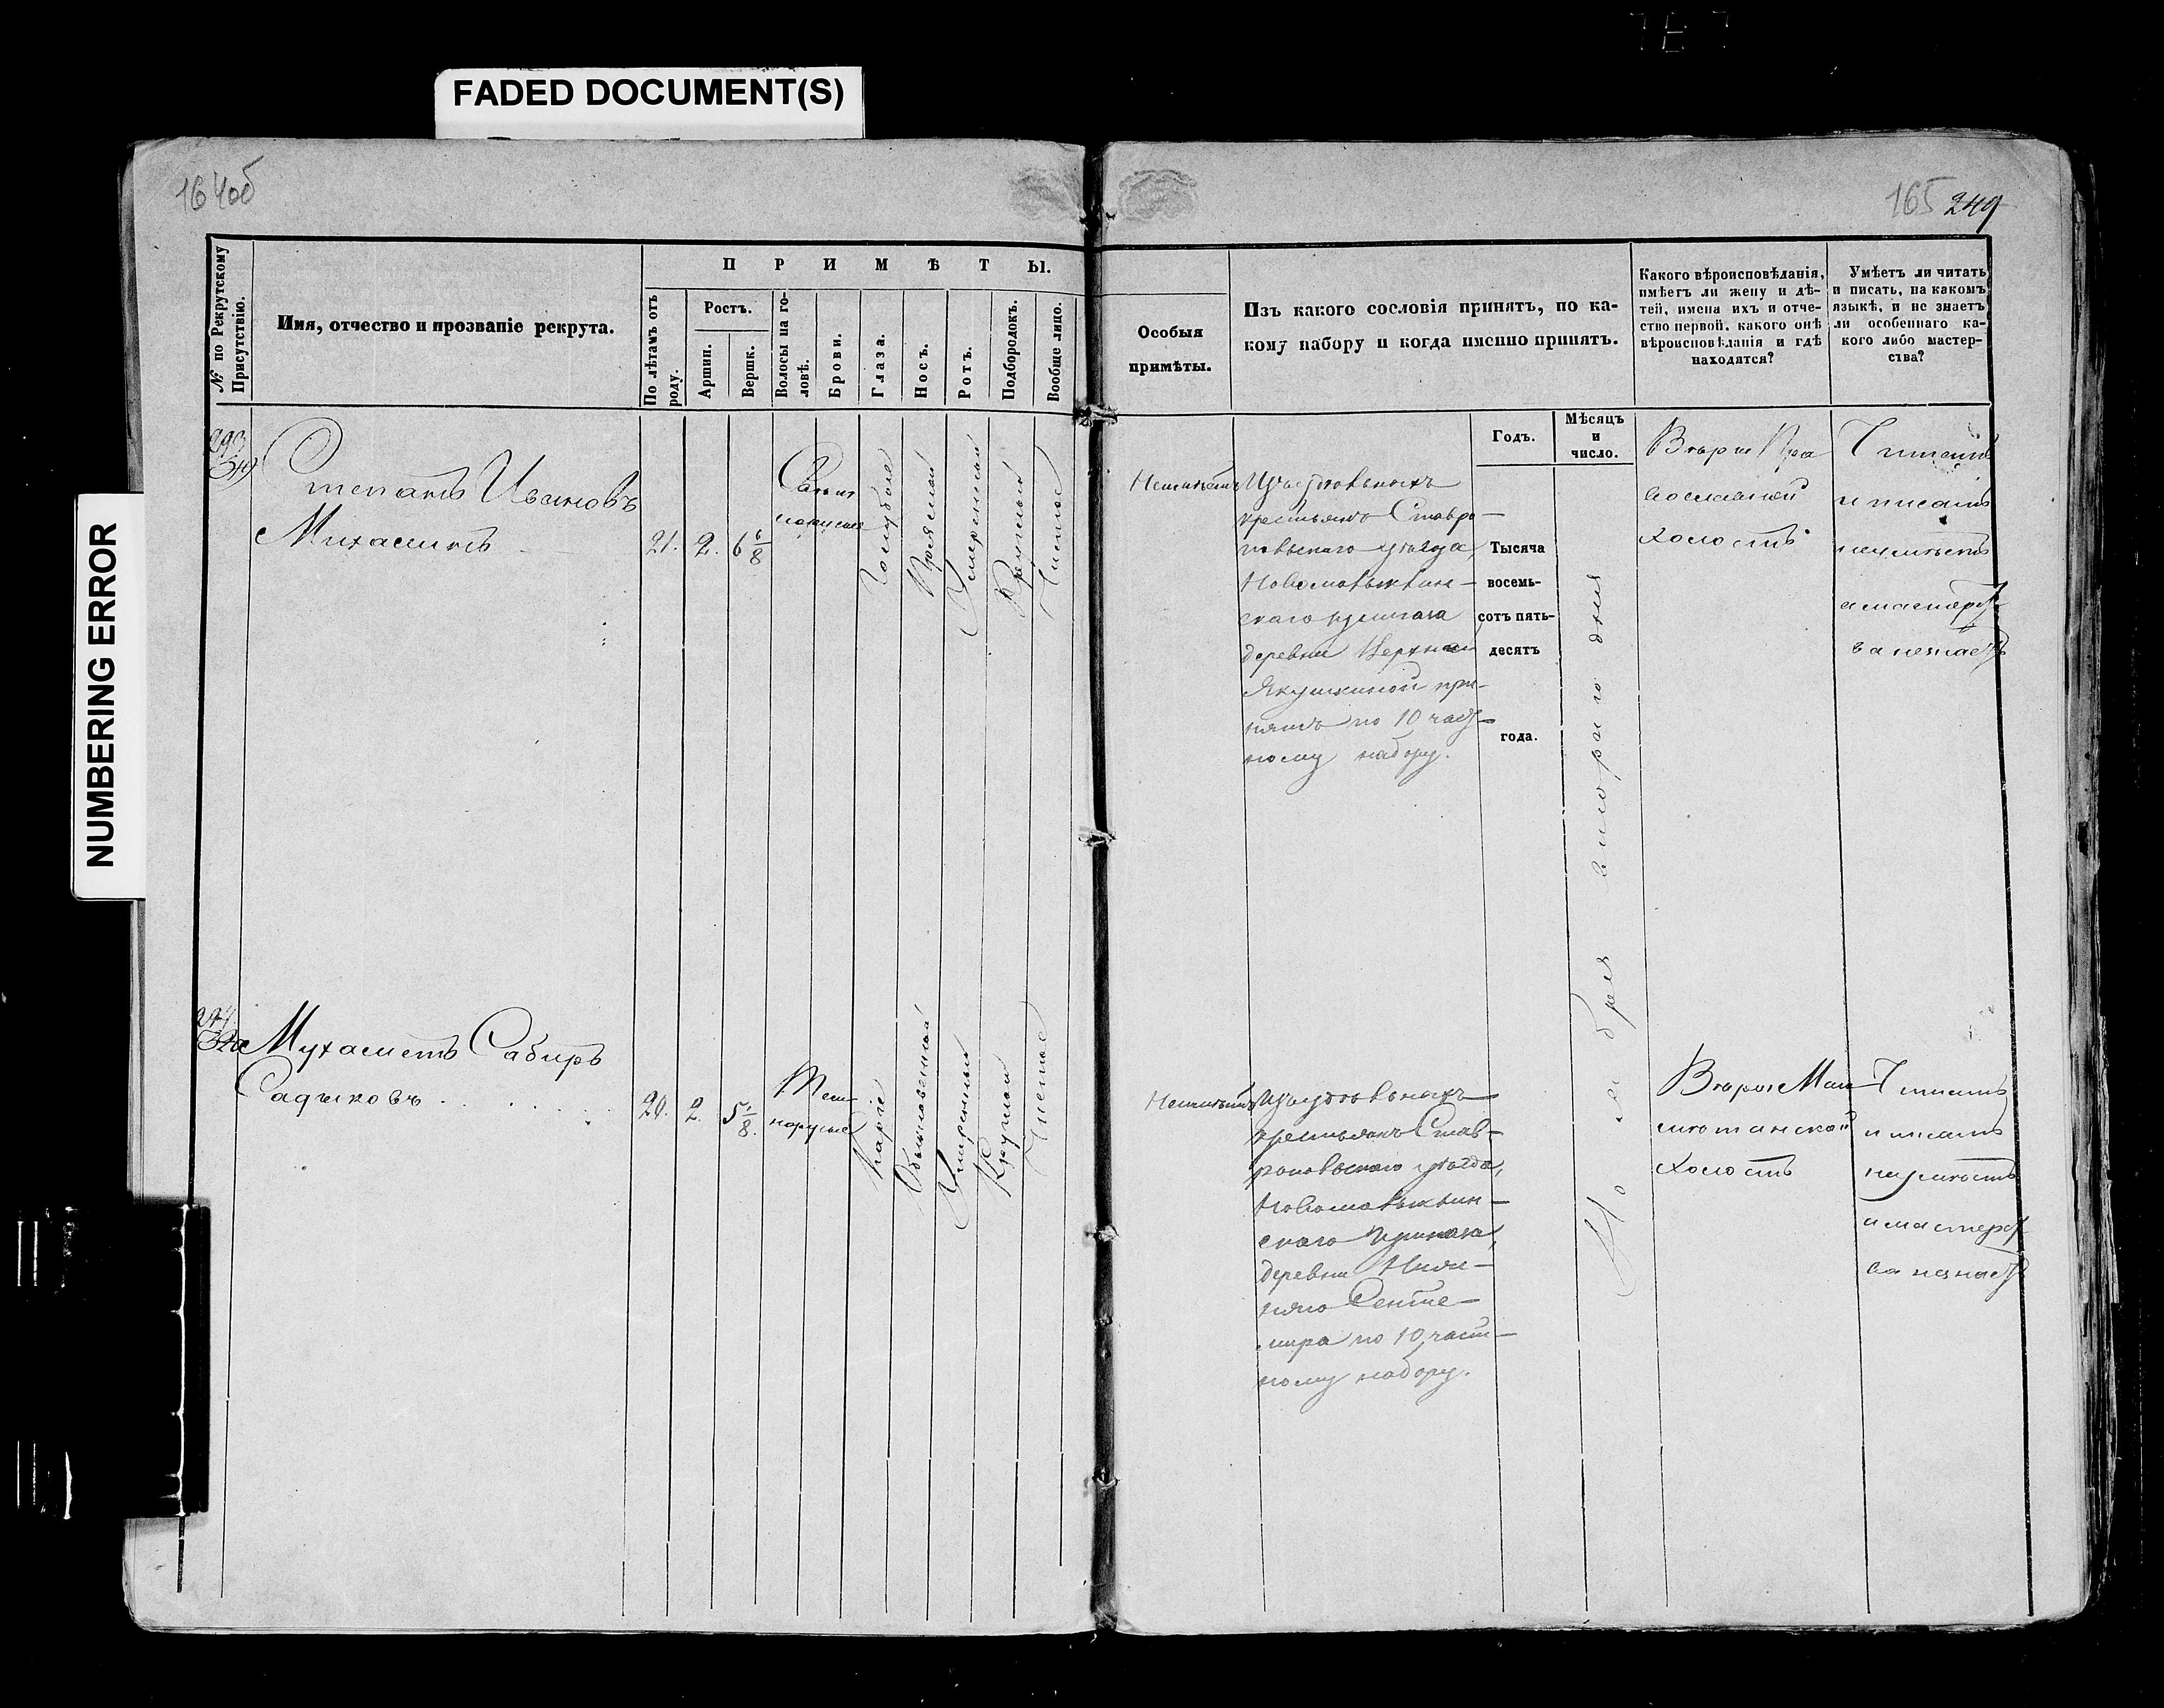 FADED DOCUMENT(S)
NUMBERING ERROR
164об
165 249
№ по Рекрутскому Присутствію.
Имя, отчество и прозваніе рекрута.
ПРИМѢТЫ.
По лѣтамъ отъ роду.
Ростъ.
Аршин.
Вершк.
Волосы на головѣ.
Брови.
Глаза.
Носъ.
Ротъ.
Подбородокъ.
Вообще лицо.
Особыя
примѣты.
Изъ какого сословія принятъ, по ка-
кому набору и когда именно принятъ.
Какого вѣроисповѣданія,
имѣетъ ли жену и дѣ-
тей, имена ихъ и отче-
ство первой, какого онѣ
вѣроисповѣданія и гдѣ
находятся?
Умѣетъ ли читать
и писать, на какомъ
языкѣ, и не знаетъ
ли особеннаго ка-
кого либо мастер-
ства?
Годъ.
Мѣсяцъ
и
число.
Степанъ Ивановъ
Михаминъ
21. 2. 6 6/8
Свѣтло
Голубые
Прямой
Умеренный
Круглый
Чистое
Неимѣетъ
Изъ удѣльныхъ
крестьянъ Ставро-
польскаго уѣзда,
Новомалыклин-
скаго приказа
деревни Верхней
Якушкиной при-
нятъ по 10 част-
ному набору.
Тысяча
восемь-
сотъ пять-
десятъ
года.
Ноября втораго дня
Вѣры Пра
вославной
холостъ
Читать
и писать
неумѣетъ
а мастерст
ва незнаетъ
Мухаметъ Сабиръ
Садыковъ
20. 2. 5 1/8.
Темно
русые
Каріе
Обыкновенный
Умеренный
Круглой
Чистое
Неимѣетъ
Изъ удѣльныхъ
крестьянъ Став-
ропольскаго уѣзда,
Новомалыклин-
скаго приказа,
деревни Ниж-
няго Сенте-
мира по 10 част-
ному набору.
Вѣры Маго
метанской
холостъ
Читать
и писать
неумѣетъ
а мастерст
ва незнаетъ